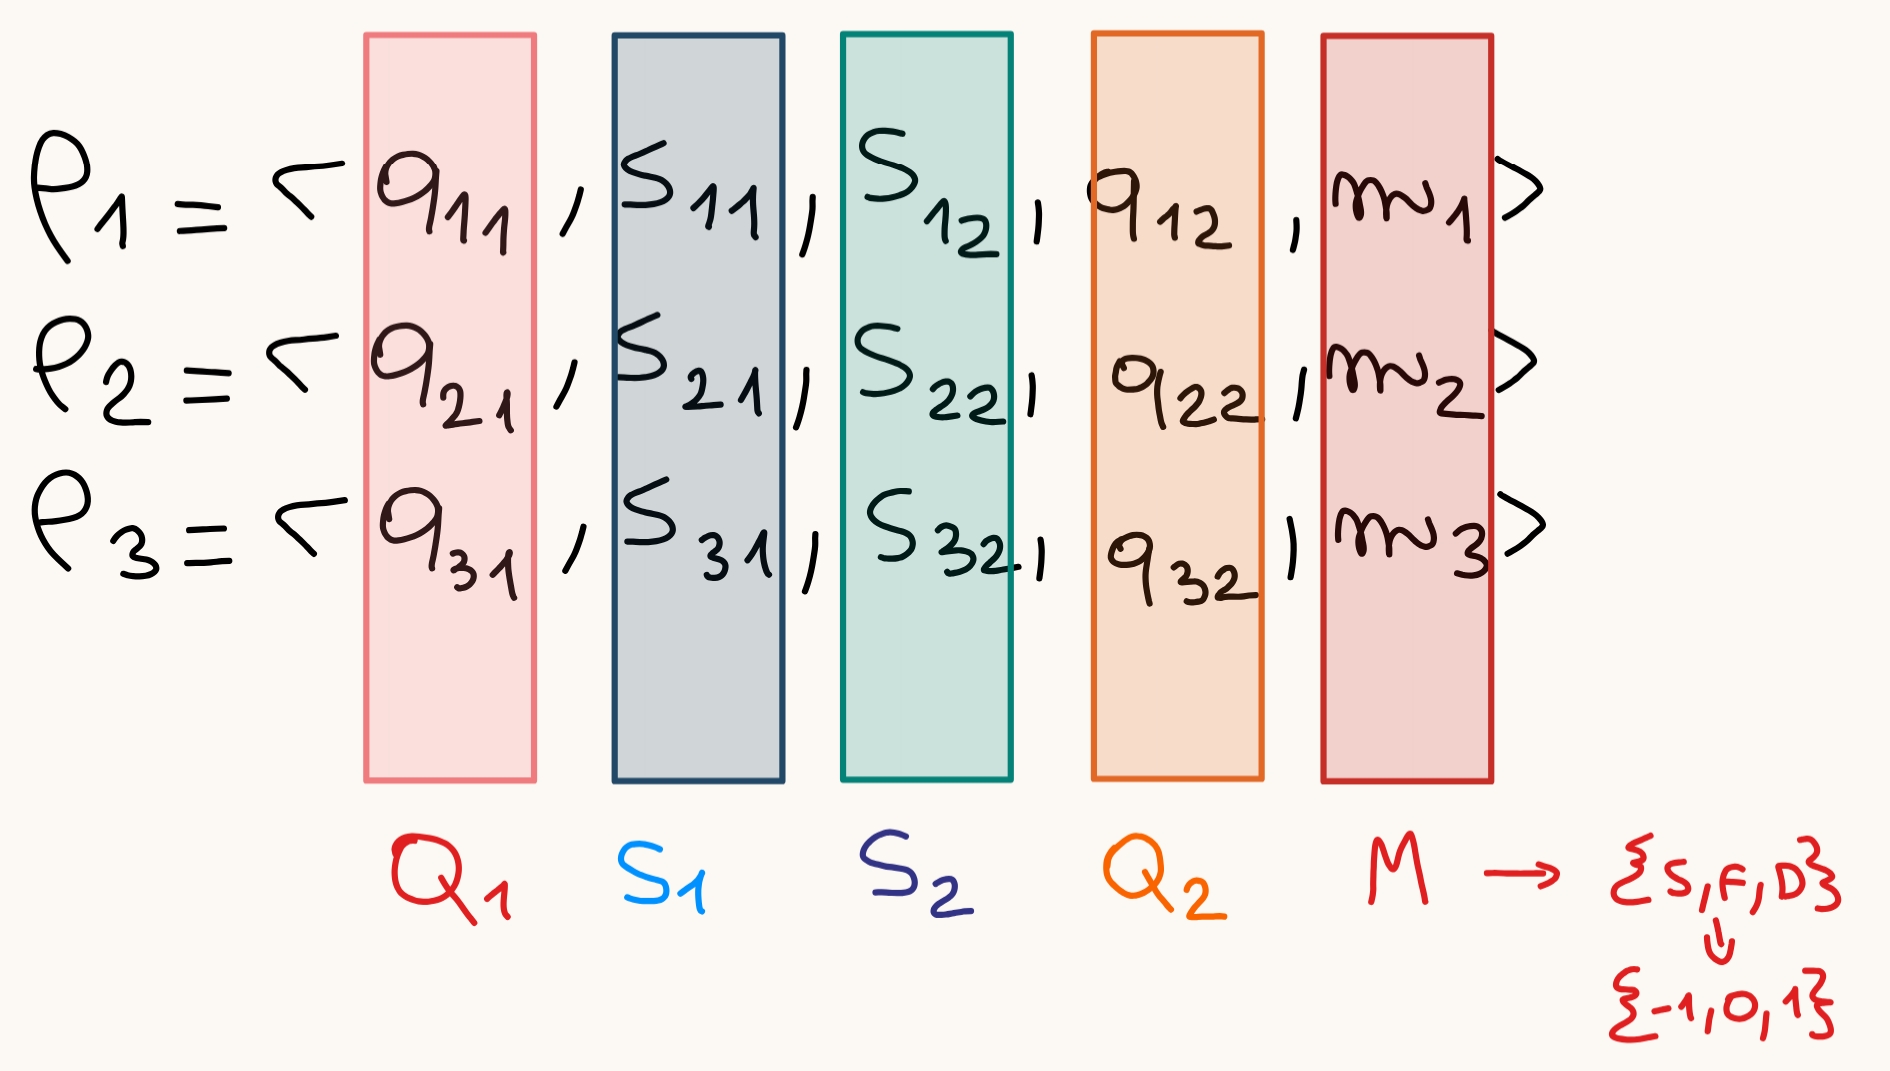 P1 = < q11, S11, S12, q12, m1>
P2 = < q21, S21, S22, q22, m2>
P3 = < q31, S31, S32, q32, m3>
Q1 S1 S2 Q2 M → {S, F, D}
↓
{-1, 0, 1}